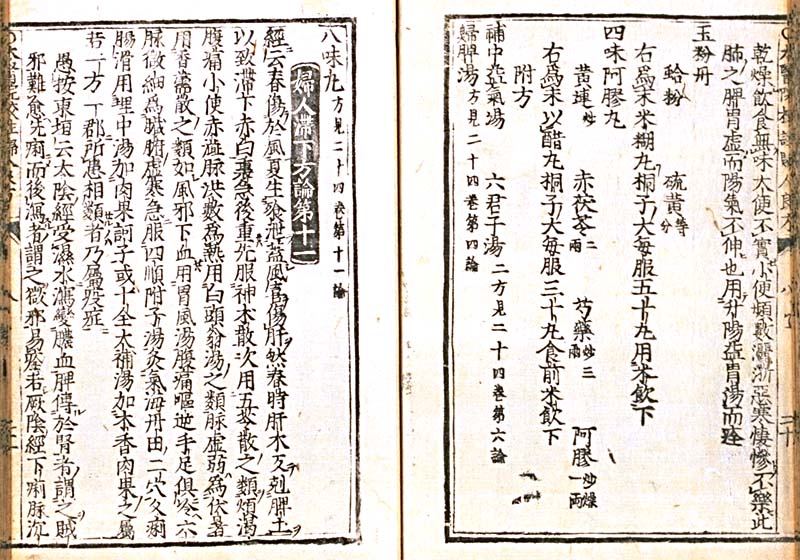 乾燥飲食無味大便不實小便頻數灑淅惡寒悽慘不樂此
肺之脾胃虛而陽氣不伸也用升陽益胃湯而痊
玉粉丹
蛤粉 硫黃等分
右爲末米糊丸桐子大每服五十丸用米飲下
四味阿膠丸
黃連炒 赤茯苓二兩 芍藥炒三兩 阿膠炒燥一兩
右爲末以醋丸桐子大每服三十丸食前米飲下
附方
補中益氣湯 六君子湯二方見二十四卷第六論
歸脾湯方見二十四卷第四論
八味丸方見二十四卷第十一論
婦人滯下方論第十一
經云春傷於風夏生飱泄蓋風喜傷肝然春時肝木又剋脾土
以致滯下赤白裏急後重先服神木散次用五苓散之類煩渴
腹痛小便赤澁脉洪數爲熱用白頭翁湯之類脉虛弱爲伏暑
用香薷散之類如風邪下血用胃風湯腹痛嘔逆手足俱冷六
脉微細爲臟腑虛寒急服四順附子湯灸氣海丹田二穴久痢
腸滑用理中湯加肉果訶子或十全大補湯加木香肉果之屬
若一方一郡所患相類者乃屬疫症
愚按東垣云太陰經受濕水瀉變膿血脾傳於腎者謂之賊
邪難愈先痢而後瀉者謂之微邪易瘥若厥陰經下痢脉沉